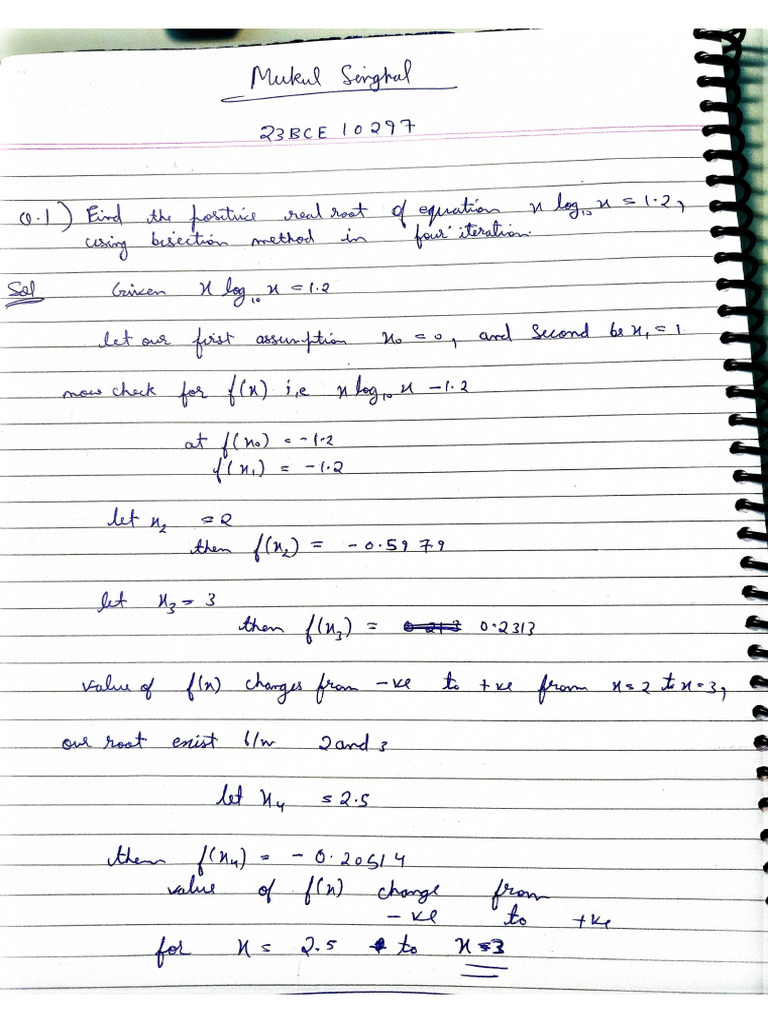 Mukul Singhal
23BCE10297
Q.1) Find the positive real root of equation x log₁₀ x = 1.2,
using bisection method in four iteration.
Sol Given x log₁₀ x = 1.2
let our first assumption x₀ = 0, and second be x₁ = 1
now check for f(x) i,e x log₁₀ x - 1.2
at f(x₀) = -1.2
f(x₁) = -1.2
let x₂ = 2
then f(x₂) = -0.5979
let x₃ = 3
then f(x₃) = 0.2313
value of f(x) changes from -ve to +ve from x=2 to x=3,
our root exist b/w 2 and 3
let x₄ = 2.5
then f(x₄) = -0.20514
value of f(x) change from
-ve to +ve
for x = 2.5 to x=3